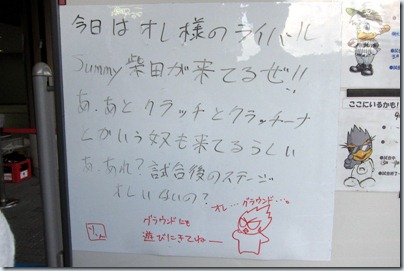 今日は オレ様のライバル
Jummy柴田が来てるぜ!!
あ、あと クラッチとクラッチーナ
とかいう奴も来てるらしい
あ、あれ？試合後のステージ
オレいないの？
オレ…グラウンド…。
グラウンドにも
遊びにきてねー
ここにいるかも!